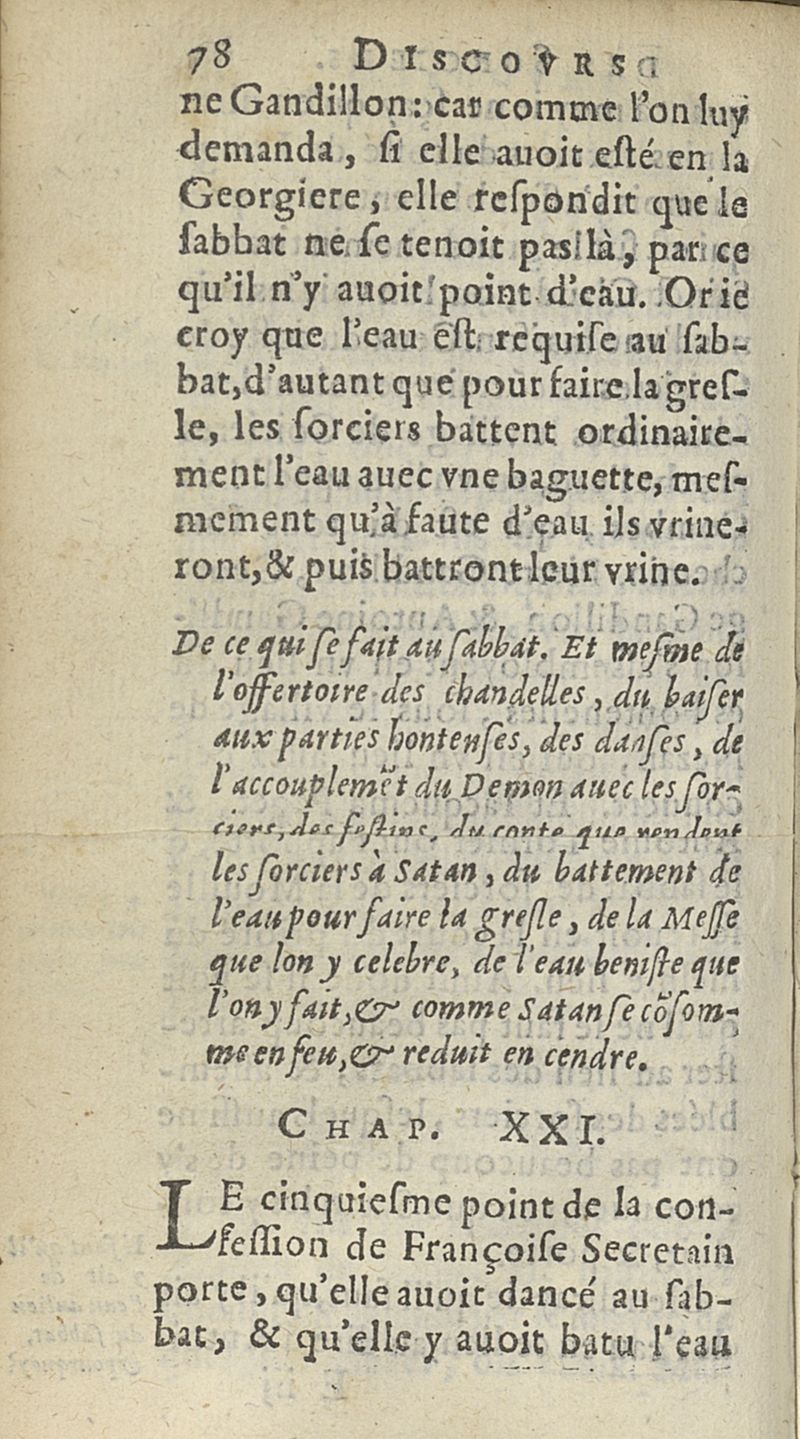 78 DISCOVRS
ne Gandillon: car comme l'on luy
demanda, ſi elle auoit eſté en la
Georgiere, elle reſpondit que le
ſabbat ne ſe tenoit pas là, par ce
qu'il n'y auoit point d'eau. Or ie
croy que l'eau eſt requiſe au ſab-
bat, d'autant que pour faire la greſ-
le, les ſorciers battent ordinaire-
ment l'eau auec vne baguette, meſ-
mement qu'à faute d'eau ils vrine-
ront, & puis battront leur vrine.
De ce qui ſe fait au ſabbat. Et meſme de
l'offertoire des chandelles, du baiſer
aux parties honteuſes, des danſes, de
l'accouplemẽt du Demon auec les ſor-
ciers, des feſtins, du conte que rendent
les ſorciers à Satan, du battement de
l'eau pour faire la greſle, de la Meſſe
que lon y celebre, de l'eau beniſte que
l'on y fait, & comme Satan ſe cõſom-
me en feu, & reduit en cendre.
CHAP. XXI.
LE cinquieſme point de la con-
feſſion de Françoiſe Secretain
porte, qu'elle auoit dancé au ſab-
bat, & qu'elle y auoit batu l'eau